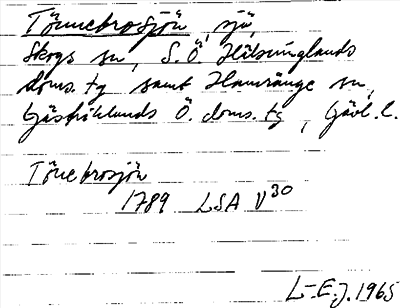 Tönnebrosjön, sjö,
Skogs sn, S.Ö. Hälsinglands
doms.tg samt Hamrånge sn,
Gästriklands Ö. doms.tg, Gävl.l.
Tönebrosjön
1789 LSA V30
L-E.J. 1965